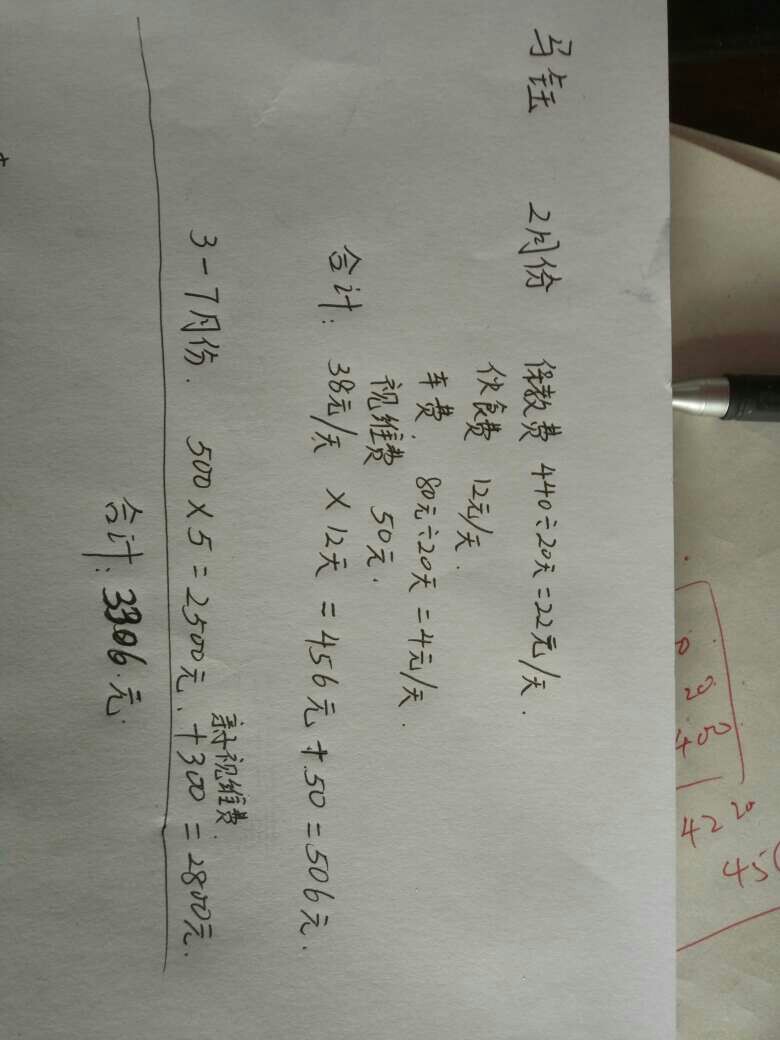 马钰 2月份 保教费 440÷20天=22元/天.
伙食费 12元/天.
车费 80元÷20天=4元/天.
视维费 50元.
合计: 38元/天 × 12天 = 456元 + 50 = 506元.
新视维费.
3-7月份. 500×5=2500元. +300 = 2800元.
合计: 3306.元.
0.
20.
400
42 20
45